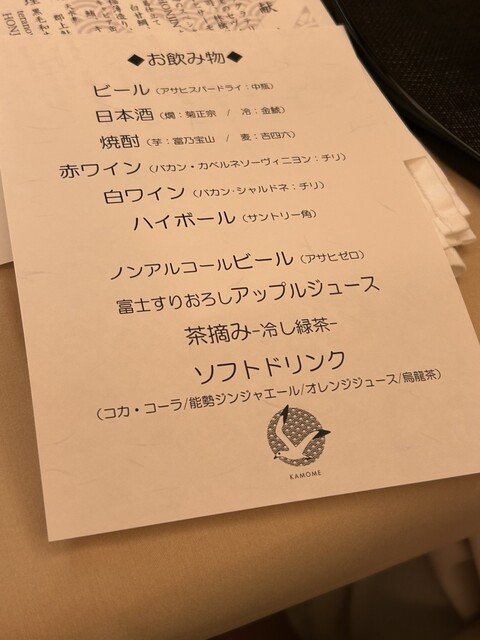 ◆お飲み物◆
ビール（アサヒスパードライ：中瓶）
日本酒（燗：菊正宗 / 冷：金鯱）
焼酎（芋：富乃宝山 / 麦：吉四六）
赤ワイン（バカン・カベルネソーヴィニヨン：チリ）
白ワイン（バカン・シャルドネ：チリ）
ハイボール（サントリー角）
ノンアルコールビール（アサヒゼロ）
富士すりおろしアップルジュース
茶摘み-冷し緑茶-
ソフトドリンク
（コカ・コーラ/能勢ジンジャエール/オレンジジュース/烏龍茶）
KAMOME